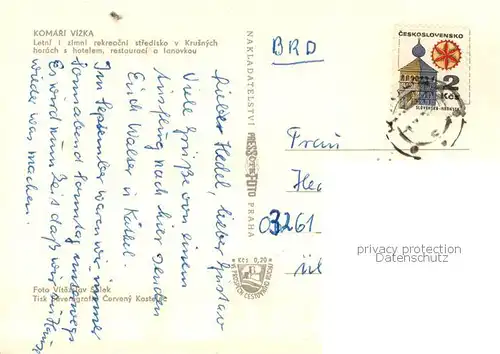 KOMÁŘÍ VÍŽKA
Letní i zimní rekreační středisko v Krušných
horách s hotelem, restaurací a lanovkou
NAKLADATELSTVÍ PRESSFOTO PRAHA
Kčs 0,20
Foto Vítězslav
Tisk Severografia Červený Kostelec
Lieber Hedel, lieber Gustav
Viele Grüße von einem
Ausflug nach hier senden
Erich Walser u. Käthel.
Im September waren wir immer
Sonnabend Sonntag unterwegs
Es wird nun Zeit daß wir
wieder was machen.
BRD
ČESKOSLOVENSKO
2
Kčs
SLOVENSKO-
Frau
He
3261
privacy protection
Datenschutz